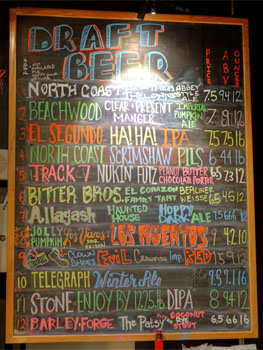 DRAFT
BEER
PRICE ABV OUNCE
NORTH COAST THE ABBEY STYLE ALE 7.5 9.4 12
2 BEACHWOOD CLEAR & PRESENT MANGER IMPERIAL PUMPKIN ALE
3 EL SEGUNDO HALHAL IPA 7.5 7.5 16
4 NORTH COAST SCRIMSHAW PILS 6 4.4 16
5 TRACK 7 NUKIN FUTZ PEANUT BUTTER CHOCOLATE PORTER 6.5 7.3 12
6 BITTER BROS. EL CORAZON FAMILY TART BERLINER WEISSE
7 Allagash HAUNTED HOUSE HOPPY DARK ALE 7.5 6.66 16
JOLLY PUMPKIN LOS MUERTOS 9
CLOWN SHOES CRAWFISH IMP. RED 15
10 TELEGRAPH Winter Ale 16
11 STONE ENJOY BY 12.25.16 DIPA 8 9.4 12
12 BARLEY FORGE The Patsy COCONUT RYE STOUT 6.5 6.6 16